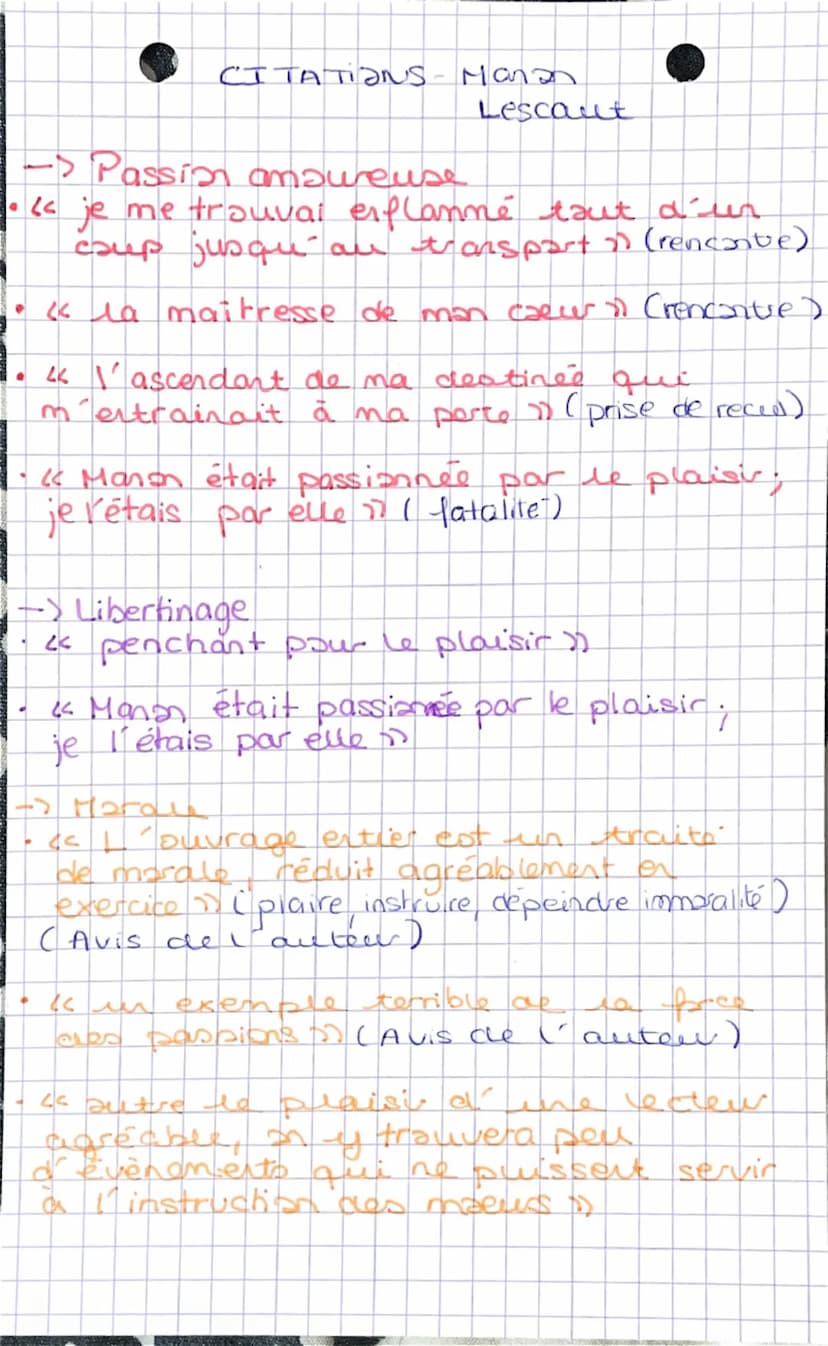 CITATIONS - Manon
Lescaut
-> Passion amoureuse
• « je me trouvai enflammé tout d'un
coup jusqu'au transport » (rencontre)
• « la maîtresse de mon cœur » (rencontre)
• « l'ascendant de ma destinée qui
m'entrainait à ma perte » (prise de recul)
• « Manon était passionnée par le plaisir ;
je l'étais par elle » (fatalité)
-> Libertinage
• « penchant pour le plaisir »
• « Manon était passionnée par le plaisir ;
je l'étais par elle »
-> Morale
• « L'ouvrage entier est un traité
de morale, réduit agréablement en
exercice » (plaire, instruire, dépeindre immoralité)
(Avis de l'auteur)
• « un exemple terrible de la force
des passions » (Avis de l'auteur)
• « outre le plaisir d'une lecteur
agréable, on y trouvera peu
d'évènements qui ne puissent servir
à l'instruction des mœurs »